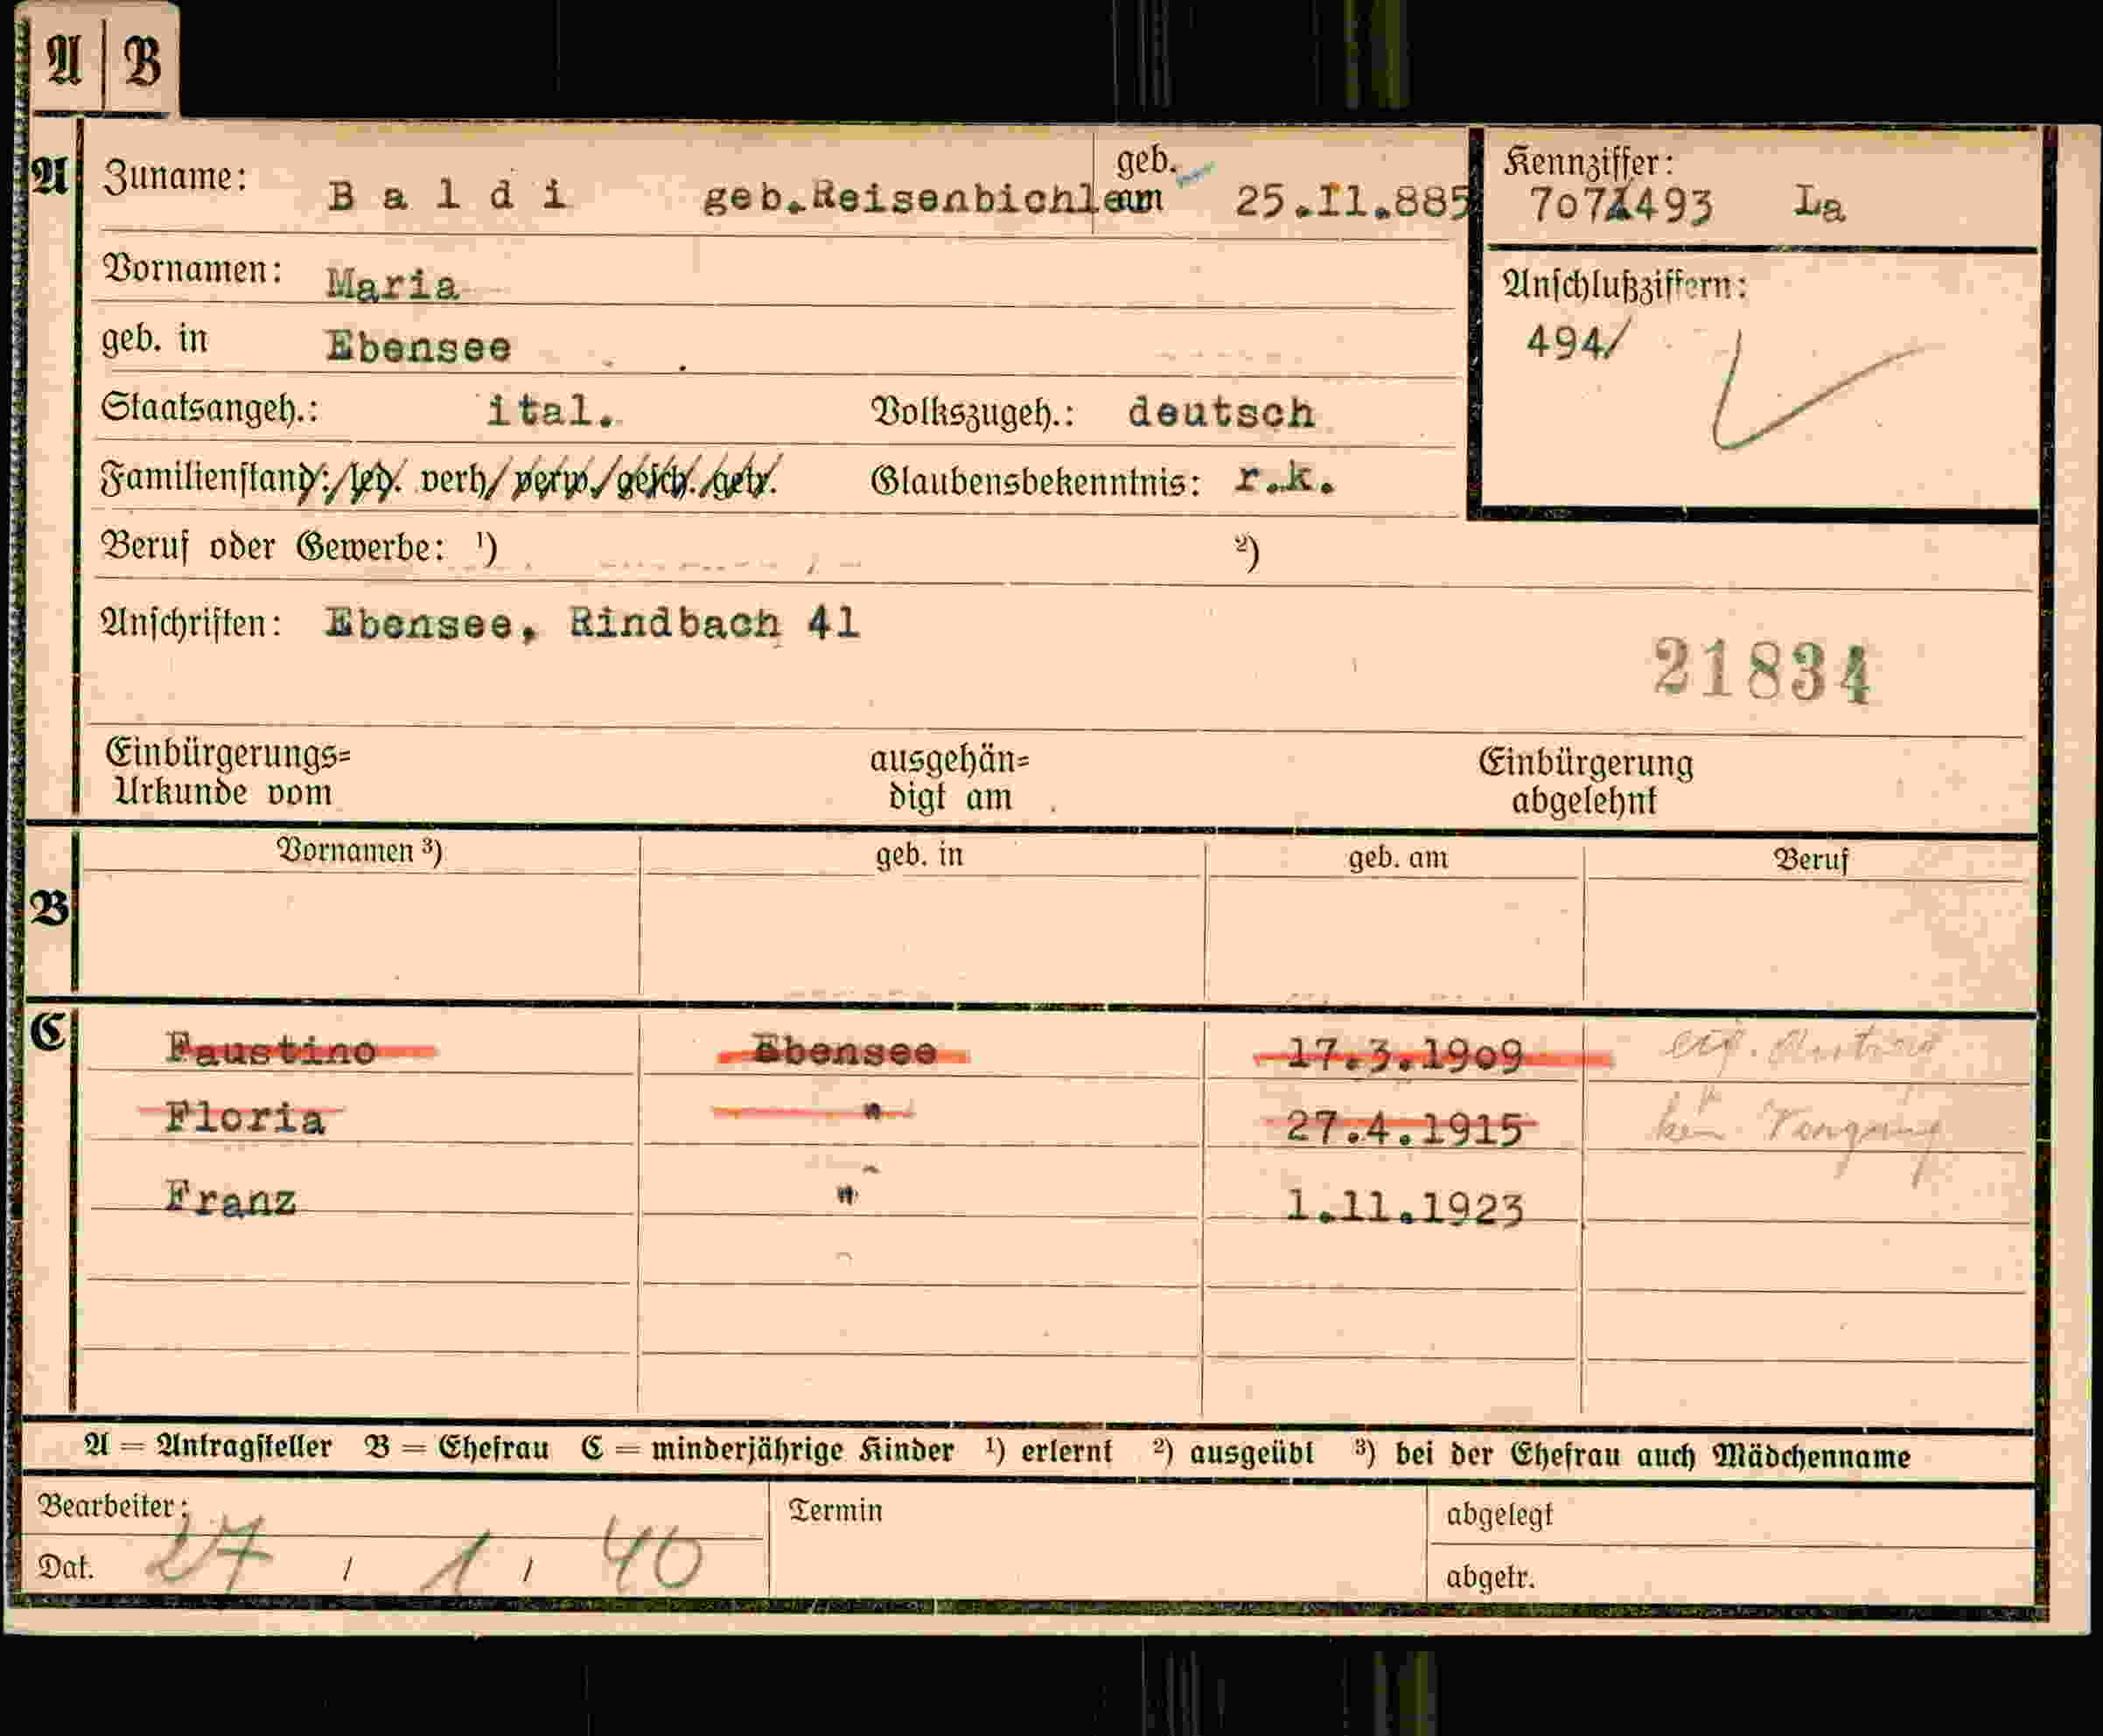 A | B
A
Zuname: B a l d i geb.Reisenbichler geb. am 25.11.885
Kennziffer: 7071493 La
Vornamen: Maria
Anschlußziffern: 494/
geb. in Ebensee
Staatsangeh.: ital. Volkszugeh.: deutsch
Familienstand: led. verh/ verw./gesch./getr. Glaubensbekenntnis: r.k.
Beruf oder Gewerbe: ¹) ²)
Anschriften: Ebensee, Rindbach 41
21834
Einbürgerungs=Urkunde vom ausgehän=digt am Einbürgerung abgelehnt
Vornamen ³) geb. in geb. am Beruf
B
C
Faustino Ebensee 17.3.1909
Floria " 27.4.1915
Franz " 1.11.1923
A = Antragsteller B = Ehefrau C = minderjährige Kinder ¹) erlernt ²) ausgeübt ³) bei der Ehefrau auch Mädchenname
Bearbeiter: Termin abgelegt
Dat. 27 / 1 / 40 abgetr.